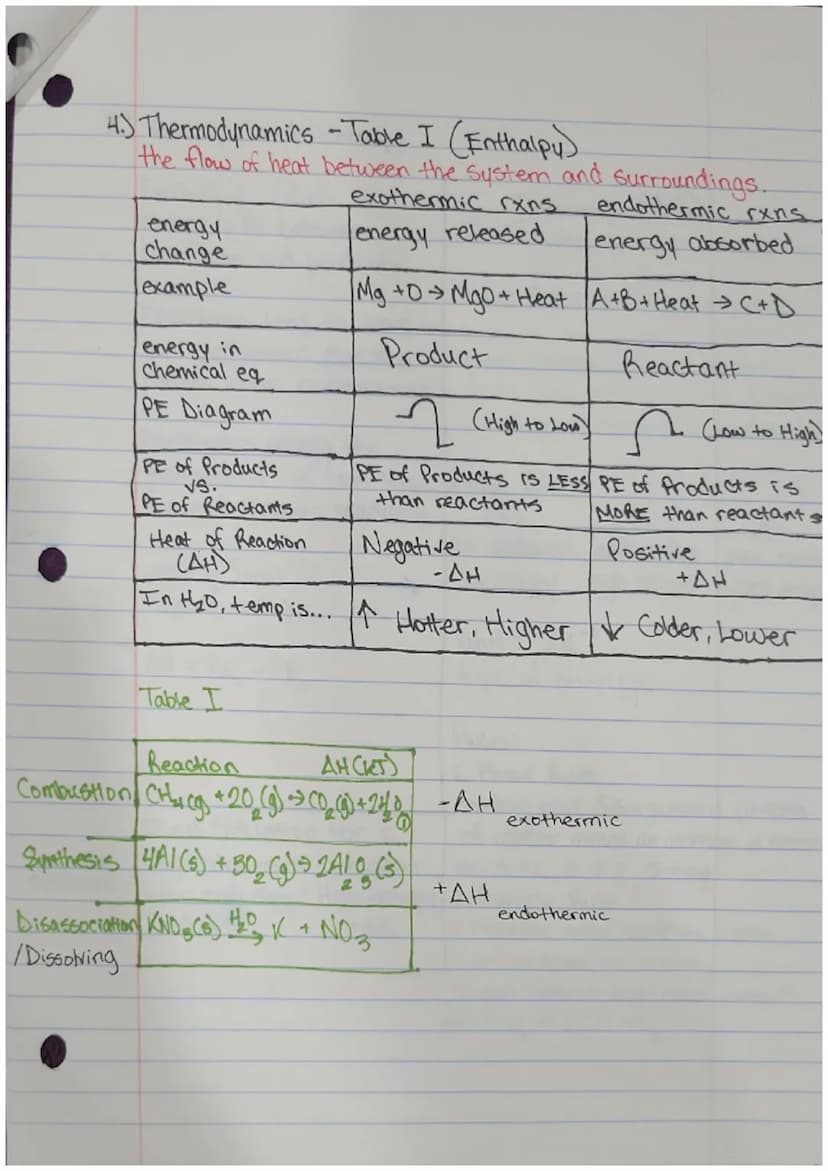 4.) Thermodynamics - Table I (Enthalpy)
the flow of heat between the system and surroundings.
exothermic rxns endothermic rxns
energy change energy released energy absorbed
example Mg + O → MgO + Heat A+B+Heat → C+D
energy in chemical eq Product Reactant
PE Diagram (High to Low) (Low to High)
PE of Products vs. PE of Reactants PE of Products is LESS than reactants PE of Products is MORE than reactants
Heat of Reaction (ΔH) Negative -ΔH Positive +ΔH
In H2O, temp is... ↑ Hotter, Higher ↓ Colder, Lower
Table I
Reaction ΔH (KJ)
Combustion CH4(g) + 2O2(g) → CO2(g) + 2H2O(l) -ΔH exothermic
Synthesis 4Al(s) + 3O2(g) → 2Al2O3(s)
+ΔH endothermic
Disassociation /Dissolving KNO3(s) H2O → K + NO3